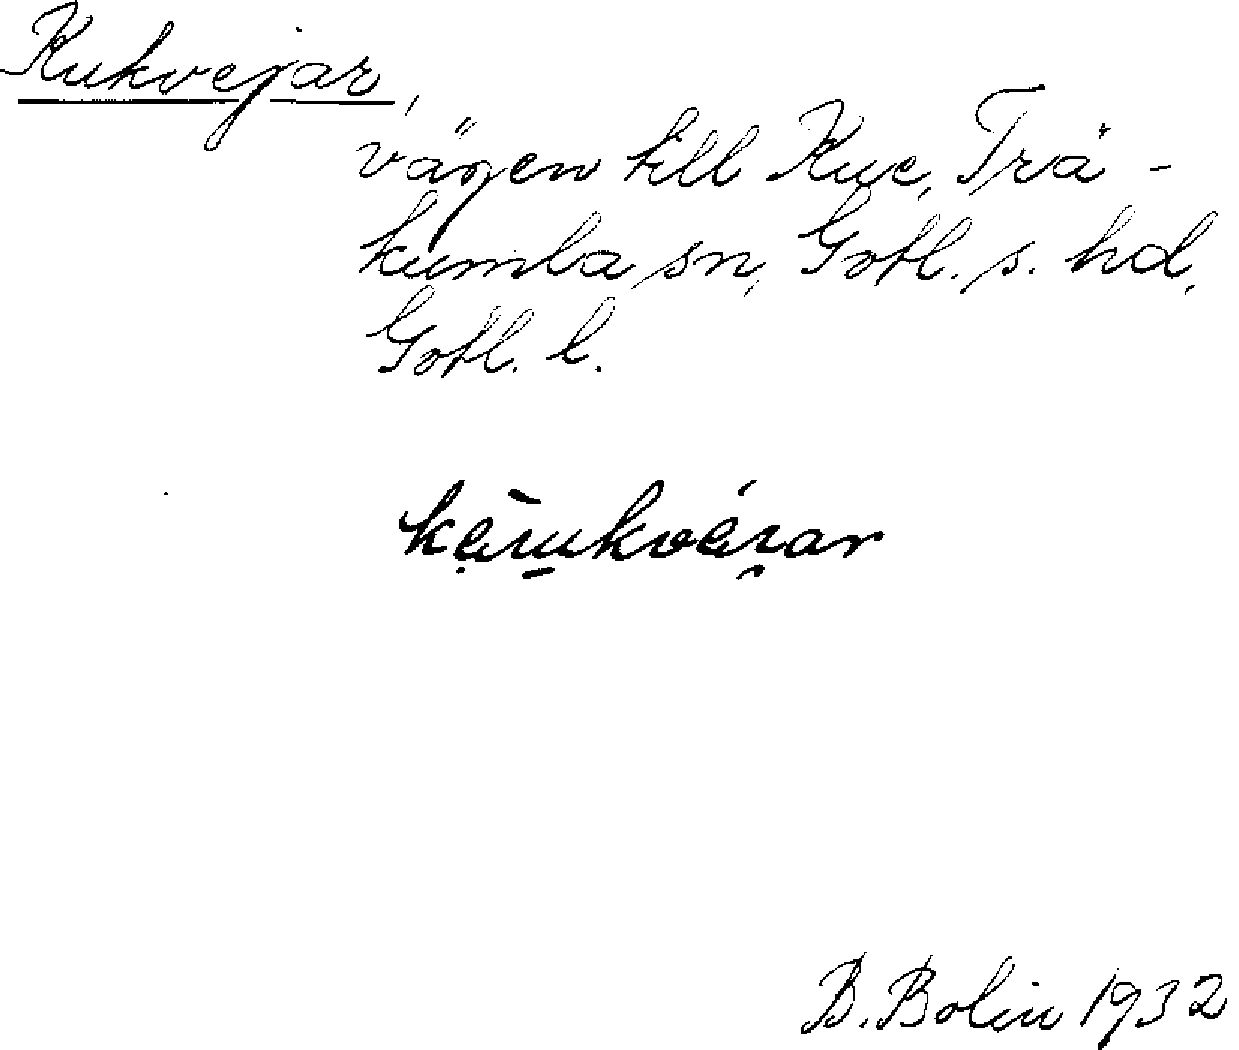 Kukvejar,
vägen till Kue, Trä-
kumba sn, Gotl. s. hd,
Gotl. l.
B. Bolin 1932